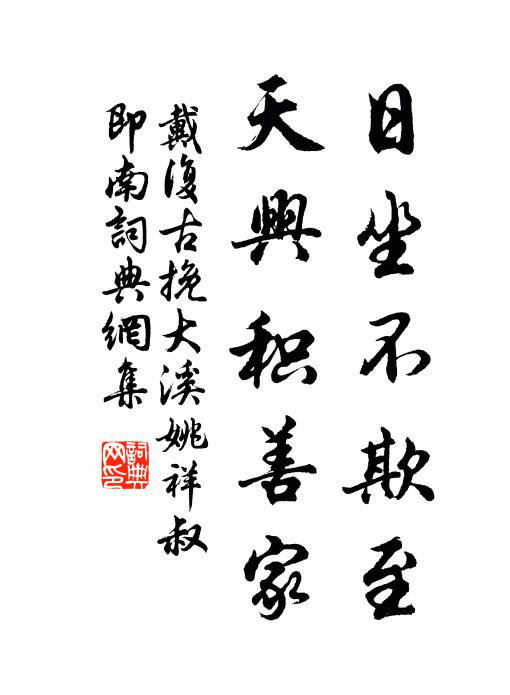 日坐不欺至
天興积善家
戴復古挽大溪姚祥叔
即南詞典網集
詞典网印